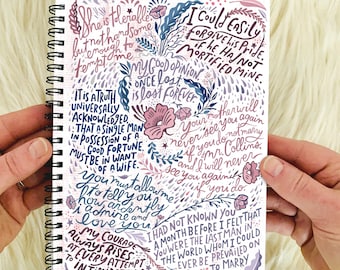 She is tolerable
but not handsome
enough to
tempt me
I could easily
forgive his pride
if he had not
mortified mine.
My good opinion
once lost
is lost forever.
It is a truth
universally
acknowledged,
that a single man
in possession of a
good fortune,
must be in want
of a wife.
Your mother will
never see you again
if you do not marry
Mr. Collins,
& I will never
see you again
if you do.
You must allow me
to tell you
how ardently
I admire and
love you
Had not known you
a month before I felt that
you were the last man in
the world whom I could
ever be prevailed
on to marry
My courage
always rises
to every attempt